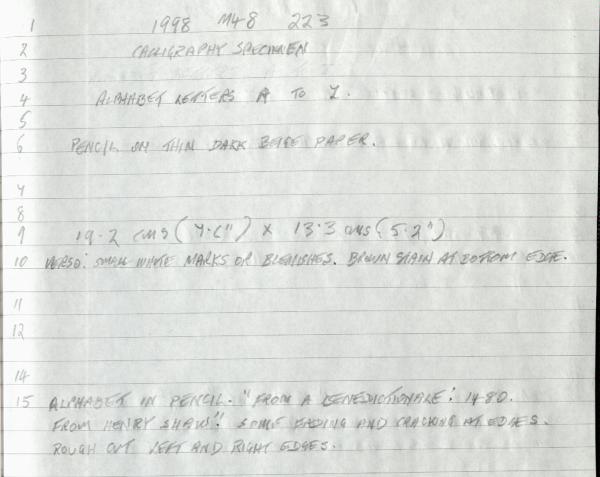 1 1998 M48 223
2 CALLIGRAPHY SPECIMEN
3
4 ALPHABET LETTERS A TO Z.
5
6 PENCIL ON THIN DARK BEIGE PAPER.
7
8
9 19.2 CMS (7.6") X 13.3 CMS (5.2")
10 VERSO: SMALL WHITE MARKS OR BLEMISHES. BROWN STAIN AT BOTTOM EDGE.
11
12
14
15 ALPHABET IN PENCIL. "FROM A BENEDICTIONALE: 1480.
FROM HENRY SHAW". SOME FADING AND CRACKING AT EDGES.
ROUGH CUT LEFT AND RIGHT EDGES.